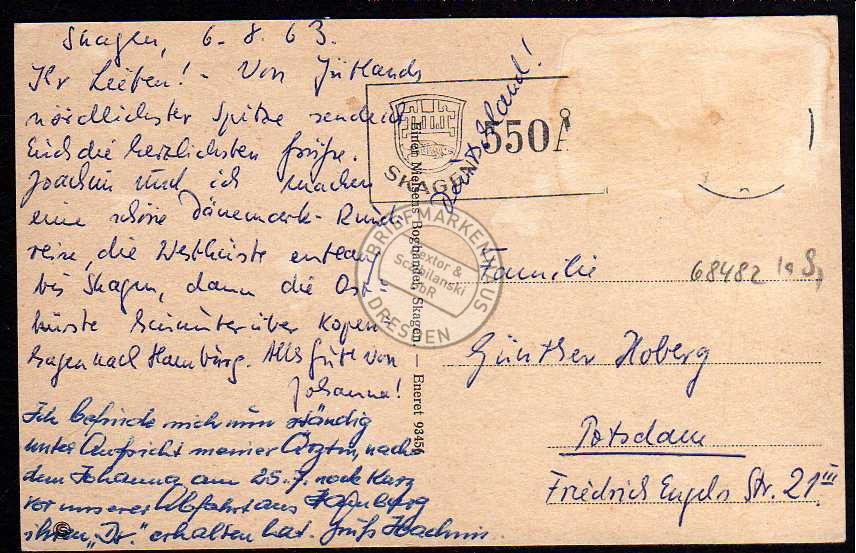 Skagen, 6.8.63.
Ihr Lieben! - Von Jütlands
nördlichster Spitze sende ich
Euch die herzlichsten Grüße.
Joachim und ich machen
eine schöne Dänemark-Rund-
reise, die Westküste entlang
bis Skagen, dann die Ost-
küste hinunter über Kopen-
hagen nach Hamburg. Alles Gute von
Johanna!
Ich befinde mich nun ständig
unter Aufsicht meiner Ärztin, nach
dem Johanna am 25.7. noch kurz
vor unserer Abfahrt aus Hamburg
ihren "Dr." erhalten hat. Gruß
Einer Nielsens Boghandel, Skagen. — Eneret 93456
SKAGEN
550 Å
Deutschland!
BRIEFMARKENHAUS
Textor &
Schibilanski
GbR
DRESDEN
68482
Familie
Günther Hoberg
Potsdam
Friedrich Engels Str. 21 III